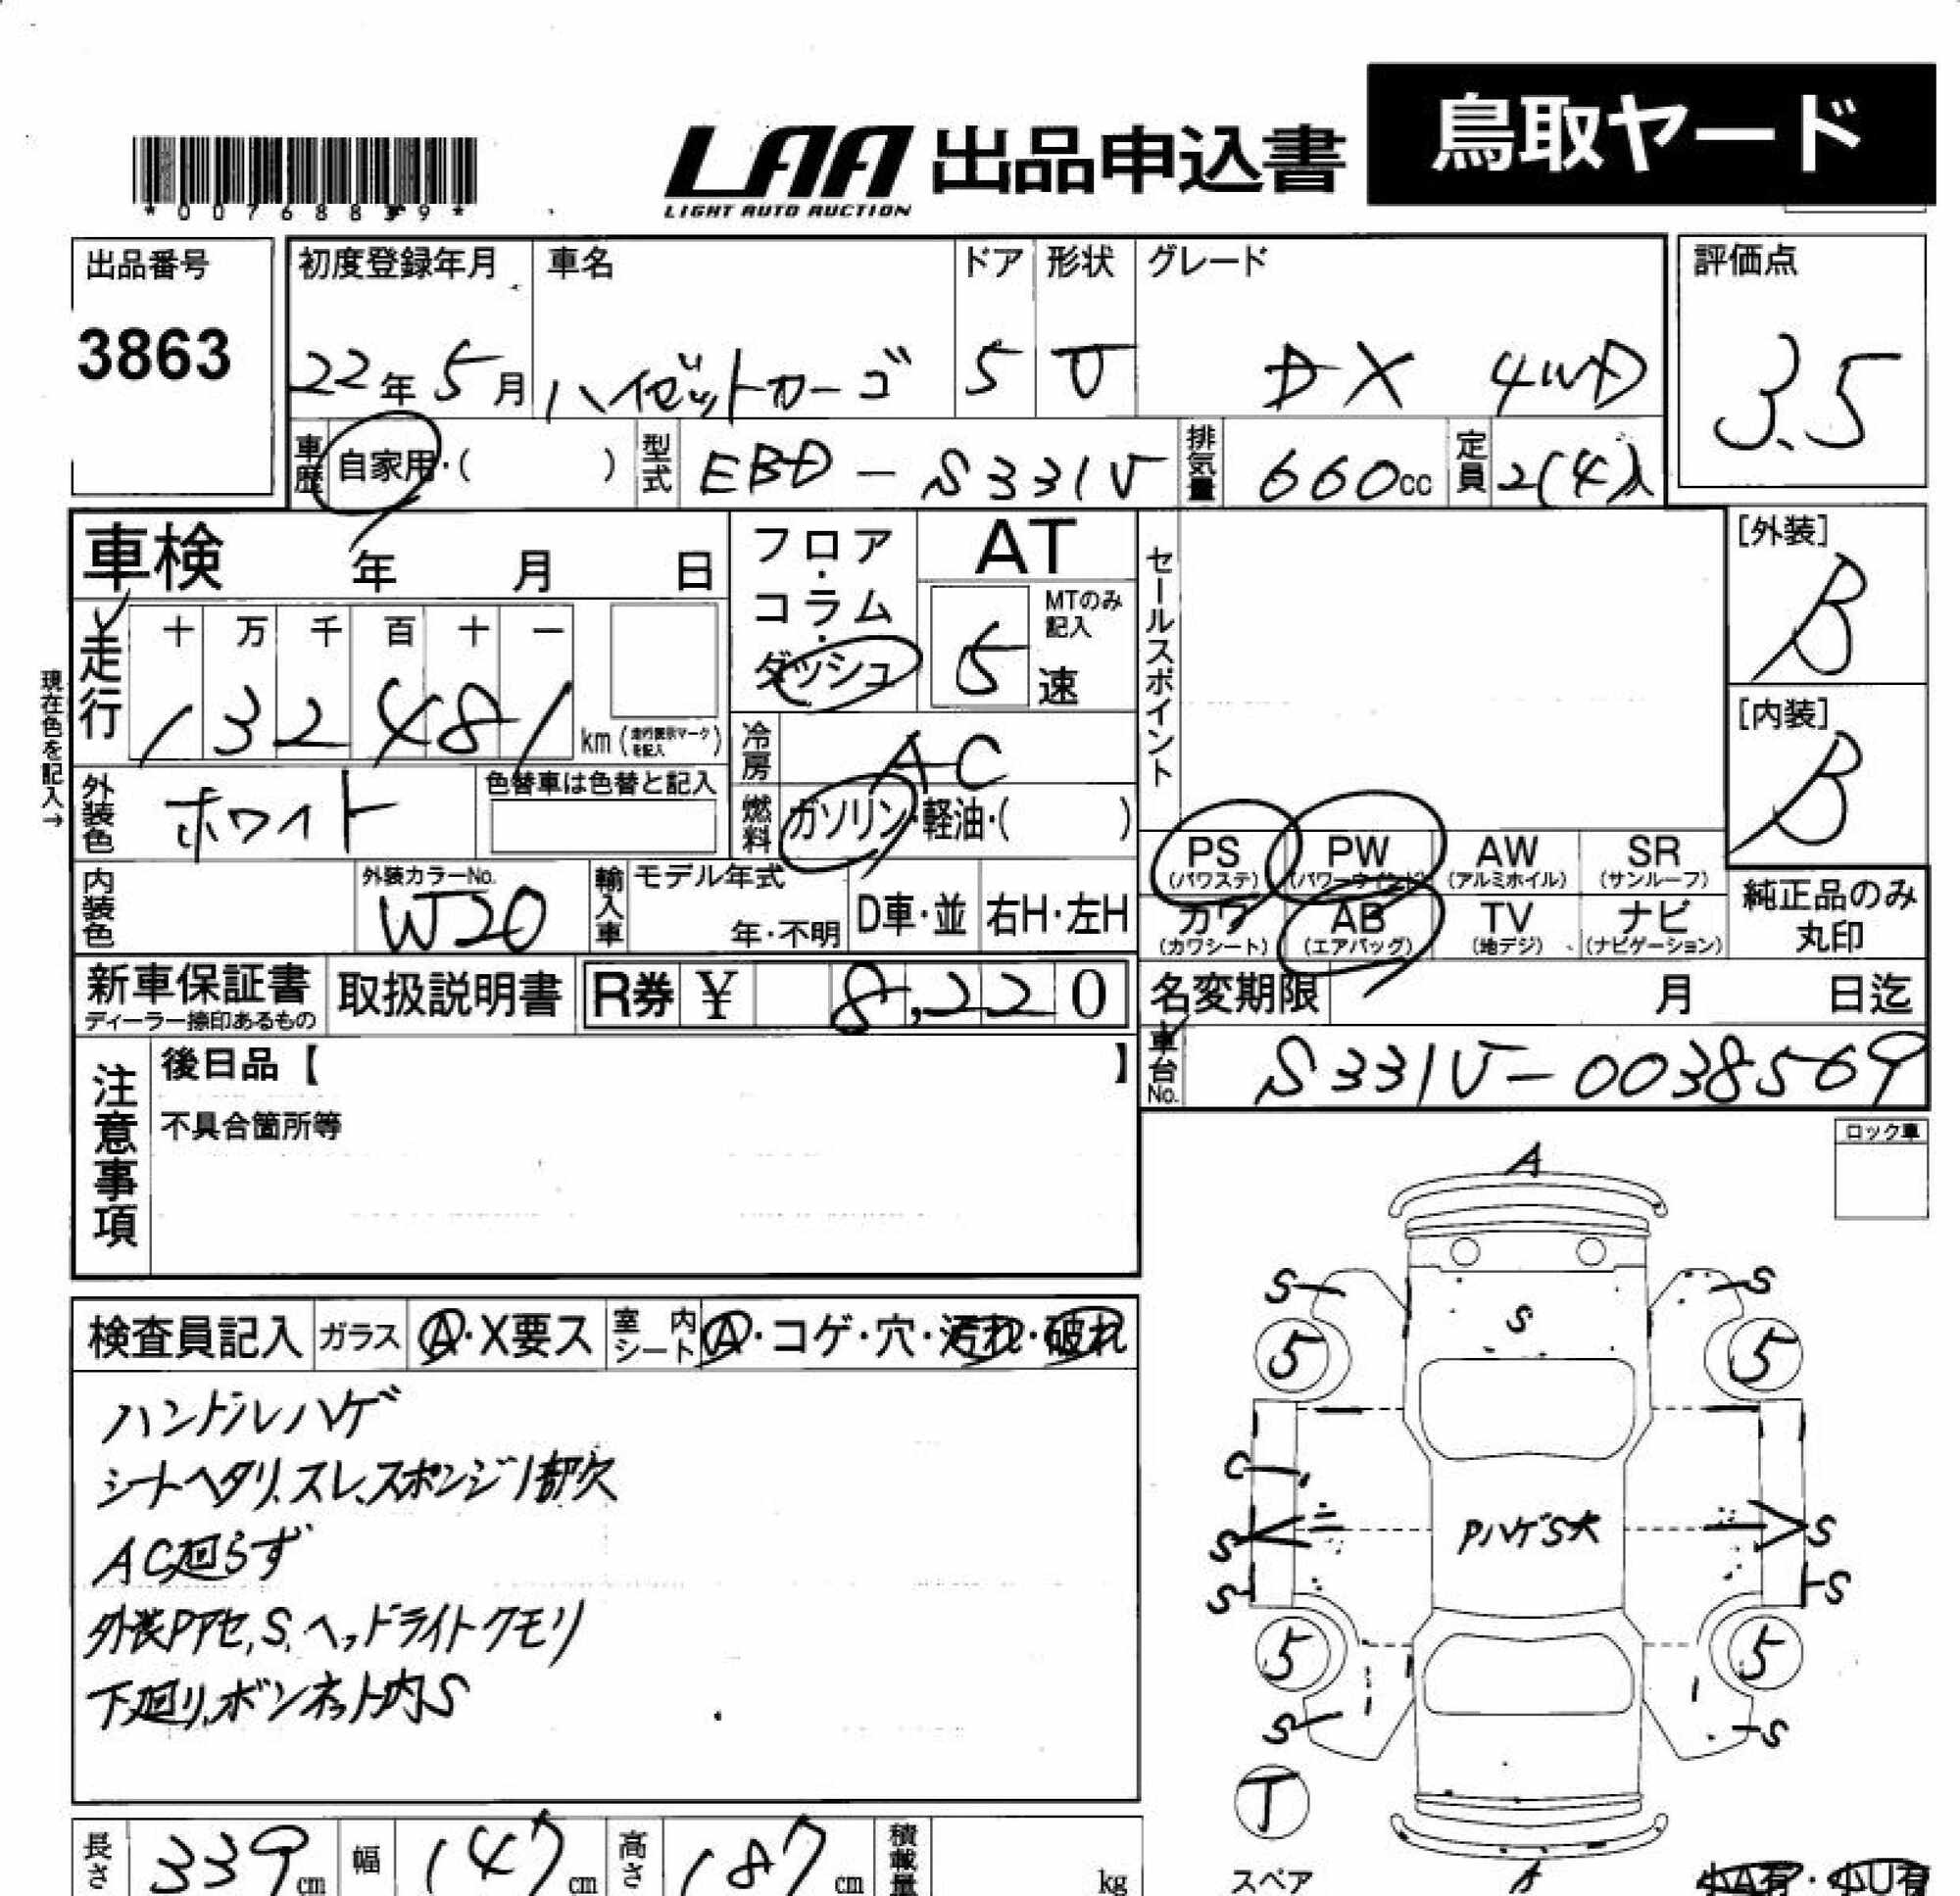 鳥取ヤード
LAA 出品申込書
LIGHT AUTO AUCTION
出品番号 初度登録年月 車名 ドア 形状 グレード 評価点
3863 22年5月 ハイゼットカーゴ 5 V DX 4WD 3.5
車歴 自家用・( ) 型式 EBD-S331V 排気量 660cc 定員 2(4)人
車検 年 月 日 フロア・コラム・ダッシュ AT セールスポイント [外装]
B
走行 十 万 千 百 十 一 MTのみ記入
132481 km(走行表示マークを記入) 5 速 [内装]
現在色を記入→
冷房 AC B
外装色 ホワイト 色替車は色替と記入 燃料 ガソリン・軽油・( )
PS (パワステ) PW (パワーウインド) AW (アルミホイル) SR (サンルーフ)
内装色 外装カラーNo. W20 輸入車 モデル年式 年・不明 D車・並 右H・左H
カワ (カワシート) AB (エアバッグ) TV (地デジ) ナビ (ナビゲーション) 純正品のみ丸印
新車保証書 ディーラー捺印あるもの 取扱説明書 R券 ¥ 8,220 名変期限 月 日迄
車台No. S331V-0038569
注意事項 後日品【 】
不具合箇所等
ロック車
検査員記入 ガラス A・X要ス 室内シート A・コゲ・穴・汚れ・破れ
ハンドルハゲ
シートヘタリ、スレ、スポンジ1部欠
AC廻らず
外装Pアセ,S,ヘッドライトクモリ
下廻り,ボンネット内S
A
S S
S
5 5
C
S PハゲS大 S
S S
5 5
S S
T
スペア
長さ 339cm 幅 147cm 高さ 187cm 積載量 kg
小A有・小U有